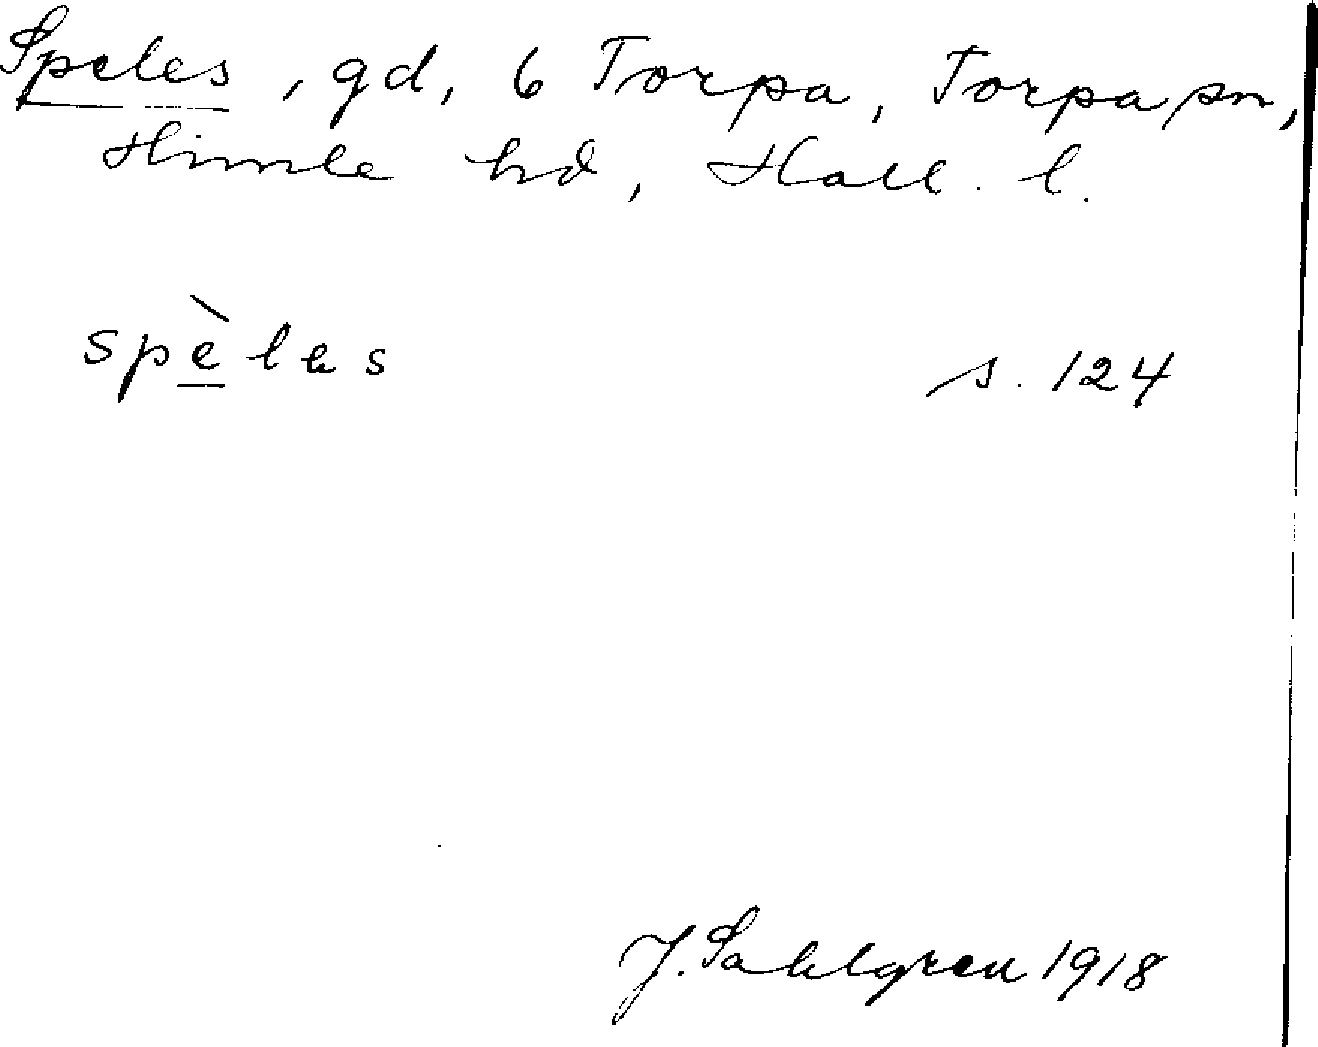 Speles, gd, 6 Torpa, Torpa sn,
Himle hd, Hall. l.
spè̲les s. 124
J. Sahlgren 1918